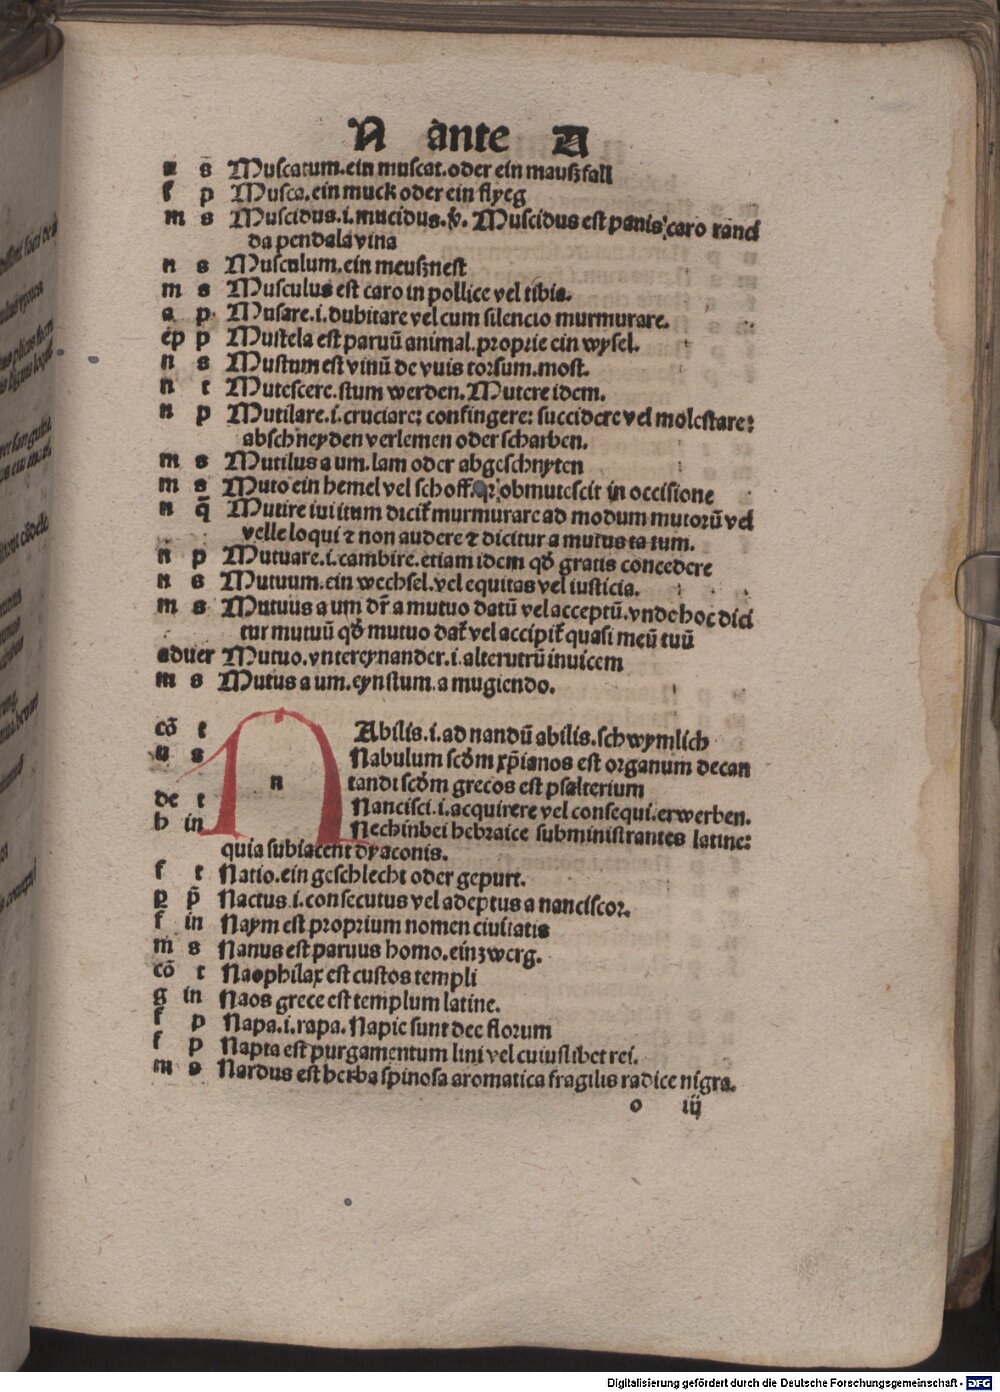 N ante A
n s̄ Muscatum.ein muscat.oder ein mauszfall
f p Musca.ein muck oder ein flyeg
m s Muscidus.i.mucidus.v̓. Muscidus est panis: caro ranci
da pendala vina
n s Musculum.ein meusznest
m s Musculus est caro in pollice vel tibia.
a p Musare.i.dubitare vel cum silencio murmurare.
ep p Mustela est paruū animal.proprie ein wysel.
n s Mustum est vinū de vuis torsum.most.
n t Mutescere.stum werden.Mutere idem.
n p Mutilare.i.cruciare: confingere: succidere vel molestare:
abschneyden verlemen oder scharben.
m s Mutilus a um.lam oder abgeschnyten
m s Muto ein hemel vel schoff. qꝛ obmutescit in occisione
n q̄ Mutire iui itum dicit̄ murmurare ad modum mutorū vel
velle loqui ⁊ non audere ⁊ dicitur a mutus ta tum.
n p Mutuare.i.cambire.etiam idem qđ gratis concedere
n s Mutuum.ein wechsel.vel equitas vel iusticia.
m s Mutuus a um dr̄ a mutuo datū vel acceptū.vnde hoc dici
tur mutuū qđ mutuo dat̄ vel accipit̄ quasi meū tuū
aduer Mutuo.vntereynander.i.alterutrū inuicem
m s Mutus a um.eyn stum.a mugiendo.
cō t NAbilis.i.ad nandū abilis.schwymlich
n s Nabulum scđm xp̄ianos est organum decan
tandi scđm grecos est psalterium
de t Nancisci.i.acquirere vel consequi.erwerben.
h in Nechinbei hebraice subministrantes latine:
quia subiacent dyaconis.
f t Natio.ein geschlecht oder gepurt.
p p̄ Nactus.i.consecutus vel adeptus a nanciscor.
f in Naym est proprium nomen ciuitatis
m s Nanus est paruus homo.ein zwerg.
cō t Naophilax est custos templi
g in Naos grece est templum latine.
f p Napa.i.rapa. Napie sunt dee florum
f p Napta est purgamentum lini vel cuiuslibet rei.
m s Nardus est herba spinosa aromatica fragilis radice nigra.
o iij
Digitalisierung gefördert durch die Deutsche Forschungsgemeinschaft - DFG